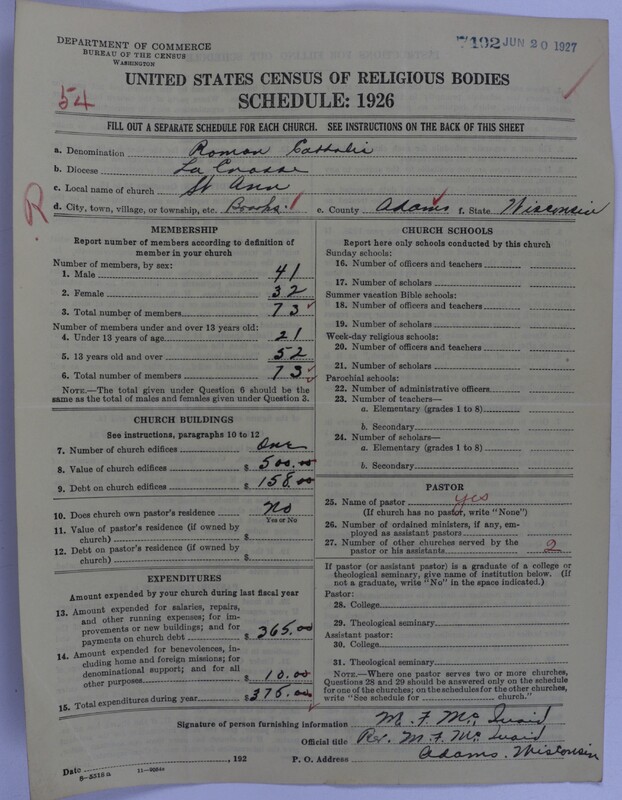 7192 JUN 20 1927
DEPARTMENT OF COMMERCE
BUREAU OF THE CENSUS
WASHINGTON
UNITED STATES CENSUS OF RELIGIOUS BODIES
54
SCHEDULE: 1926
FILL OUT A SEPARATE SCHEDULE FOR EACH CHURCH. SEE INSTRUCTIONS ON THE BACK OF THIS SHEET
a. Denomination Roman Catholic
b. Diocese La Crosse
c. Local name of church St Ann
R
d. City, town, village, or township, etc. Brooks. e. County Adams f. State Wisconsin
MEMBERSHIP
Report number of members according to definition of
member in your church
Number of members, by sex:
1. Male 41
2. Female 32
3. Total number of members 73
Number of members under and over 13 years old:
4. Under 13 years of age 21
5. 13 years old and over 52
6. Total number of members 73
NOTE.—The total given under Question 6 should be the
same as the total of males and females given under Question 3.
CHURCH BUILDINGS
See instructions, paragraphs 10 to 12
7. Number of church edifices One
8. Value of church edifices $ 500.00
9. Debt on church edifices $ 158.00
10. Does church own pastor's residence No
Yes or No
11. Value of pastor's residence (if owned by
church) $
12. Debt on pastor's residence (if owned by
church) $
EXPENDITURES
Amount expended by your church during last fiscal year
13. Amount expended for salaries, repairs,
and other running expenses; for im-
provements or new buildings; and for
payments on church debt $ 365.00
14. Amount expended for benevolences, in-
cluding home and foreign missions; for
denominational support; and for all
other purposes $ 10.00
15. Total expenditures during year $ 375.00
CHURCH SCHOOLS
Report here only schools conducted by this church
Sunday schools:
16. Number of officers and teachers
17. Number of scholars
Summer vacation Bible schools:
18. Number of officers and teachers
19. Number of scholars
Week-day religious schools:
20. Number of officers and teachers
21. Number of scholars
Parochial schools:
22. Number of administrative officers
23. Number of teachers—
a. Elementary (grades 1 to 8)
b. Secondary
24. Number of scholars—
a. Elementary (grades 1 to 8)
b. Secondary
PASTOR
25. Name of pastor yes
(If church has no pastor, write "None")
26. Number of ordained ministers, if any, em-
ployed as assistant pastors
27. Number of other churches served by the
pastor or his assistants 2
If pastor (or assistant pastor) is a graduate of a college or
theological seminary, give name of institution below. (If
not a graduate, write "No" in the space indicated.)
Pastor:
28. College
29. Theological seminary
Assistant pastor:
30. College
31. Theological seminary
NOTE.—Where one pastor serves two or more churches,
Questions 28 and 29 should be answered only on the schedule
for one of the churches; on the schedules for the other churches,
write "See schedule for church."
Signature of person furnishing information M. F. Mc Quaid
Official title Rev. M. F. Mc Quaid
Date , 192 P. O. Address Adams, Wisconsin
8-5318a 11-9084a